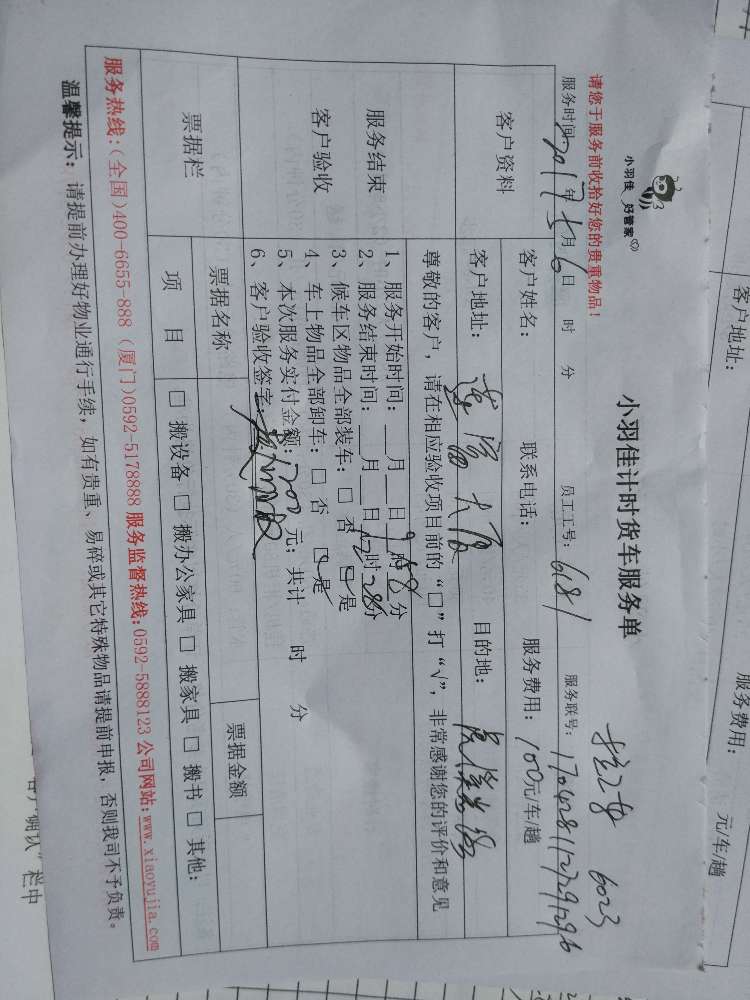 小羽佳 好管家
请您于服务前收拾好您的贵重物品！
小羽佳计时货车服务单
6023
服务时间：2017年5月6日 时 分 员工工号：6181 服务联号：
客户资料
客户姓名： 联系电话： 服务费用：100元/车/趟
客户地址：莲富大厦 目的地：
服务结束
客户验收
尊敬的客户，请在相应验收项目前的“□”打“√”，非常感谢您的评价和意见
1、服务开始时间：__月__日9时58分
2、服务结束时间：__月__日12时28分
3、候车区物品全部装车：□ 否 ☑ 是
4、车上物品全部卸车：□ 否 ☑ 是
5、本次服务实付金额：1700元；共计 时 分
6、客户验收签字：
票据栏
票据名称 票据金额
项 目 □ 搬设备 □ 搬办公家具 □ 搬家具 □ 搬书 □ 其他：
服务热线：(全国)400-6655-888 (厦门)0592-5178888 服务监督热线：0592-5888123 公司网站：www.xiaoyujia.com
温馨提示：请提前办理好物业通行手续，如有贵重、易碎或其它特殊物品请提前申报，否则我司不予负责。
客户地址：
服务费用： 元/车/趟
客户确认”栏中